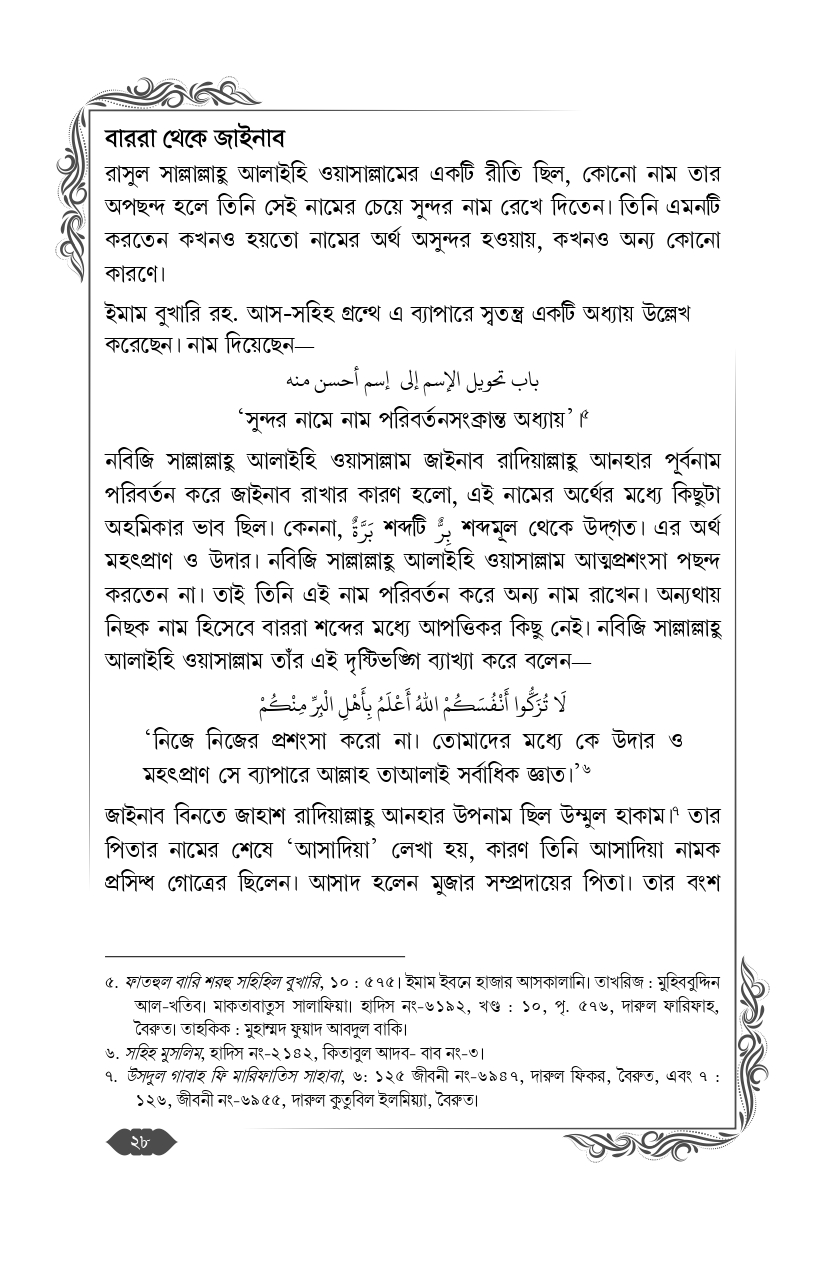 বাররা থেকে জাইনাব
রাসুল সাল্লাল্লাহু আলাইহি ওয়াসাল্লামের একটি রীতি ছিল, কোনো নাম তার
অপছন্দ হলে তিনি সেই নামের চেয়ে সুন্দর নাম রেখে দিতেন। তিনি এমনটি
করতেন কখনও হয়তো নামের অর্থ অসুন্দর হওয়ায়, কখনও অন্য কোনো
কারণে।
ইমাম বুখারি রহ. আস-সহিহ গ্রন্থে এ ব্যাপারে স্বতন্ত্র একটি অধ্যায় উল্লেখ
করেছেন। নাম দিয়েছেন—
باب تحويل الإسم إلى إسم أحسن منه
‘সুন্দর নামে নাম পরিবর্তনসংক্রান্ত অধ্যায়’।৫
নবিজি সাল্লাল্লাহু আলাইহি ওয়াসাল্লাম জাইনাব রাদিয়াল্লাহু আনহার পূর্বনাম
পরিবর্তন করে জাইনাব রাখার কারণ হলো, এই নামের অর্থের মধ্যে কিছুটা
অহমিকার ভাব ছিল। কেননা, بَرَّةٌ শব্দটি بِرٌّ শব্দমূল থেকে উদ্‌গত। এর অর্থ
মহৎপ্রাণ ও উদার। নবিজি সাল্লাল্লাহু আলাইহি ওয়াসাল্লাম আত্মপ্রশংসা পছন্দ
করতেন না। তাই তিনি এই নাম পরিবর্তন করে অন্য নাম রাখেন। অন্যথায়
নিছক নাম হিসেবে বাররা শব্দের মধ্যে আপত্তিকর কিছু নেই। নবিজি সাল্লাল্লাহু
আলাইহি ওয়াসাল্লাম তাঁর এই দৃষ্টিভঙ্গি ব্যাখ্যা করে বলেন—
لَا تُزَكُّوا أَنْفُسَكُمْ اللهُ أَعْلَمُ بِأَهْلِ الْبِرِّ مِنْكُمْ
‘নিজে নিজের প্রশংসা করো না। তোমাদের মধ্যে কে উদার ও
মহৎপ্রাণ সে ব্যাপারে আল্লাহ তাআলাই সর্বাধিক জ্ঞাত।’৬
জাইনাব বিনতে জাহাশ রাদিয়াল্লাহু আনহার উপনাম ছিল উম্মুল হাকাম।৭ তার
পিতার নামের শেষে ‘আসাদিয়া’ লেখা হয়, কারণ তিনি আসাদিয়া নামক
প্রসিদ্ধ গোত্রের ছিলেন। আসাদ হলেন মুজার সম্প্রদায়ের পিতা। তার বংশ
৫. ফাতহুল বারি শরহু সহিহিল বুখারি, ১০ : ৫৭৫। ইমাম ইবনে হাজার আসকালানি। তাখরিজ : মুহিব্বুদ্দিন
আল-খতিব। মাকতাবাতুস সালাফিয়া। হাদিস নং-৬১৯২, খণ্ড : ১০, পৃ. ৫৭৬, দারুল ফারিফাহ,
বৈরুত। তাহকিক : মুহাম্মদ ফুয়াদ আবদুল বাকি।
৬. সহিহ মুসলিম, হাদিস নং-২১৪২, কিতাবুল আদব- বাব নং-৩।
৭. উসদুল গাবাহ ফি মারিফাতিস সাহাবা, ৬: ১২৫ জীবনী নং-৬৯৪৭, দারুল ফিকর, বৈরুত, এবং ৭ :
১২৬, জীবনী নং-৬৯৫৫, দারুল কুতুবিল ইলমিয়্যা, বৈরুত।
২৮